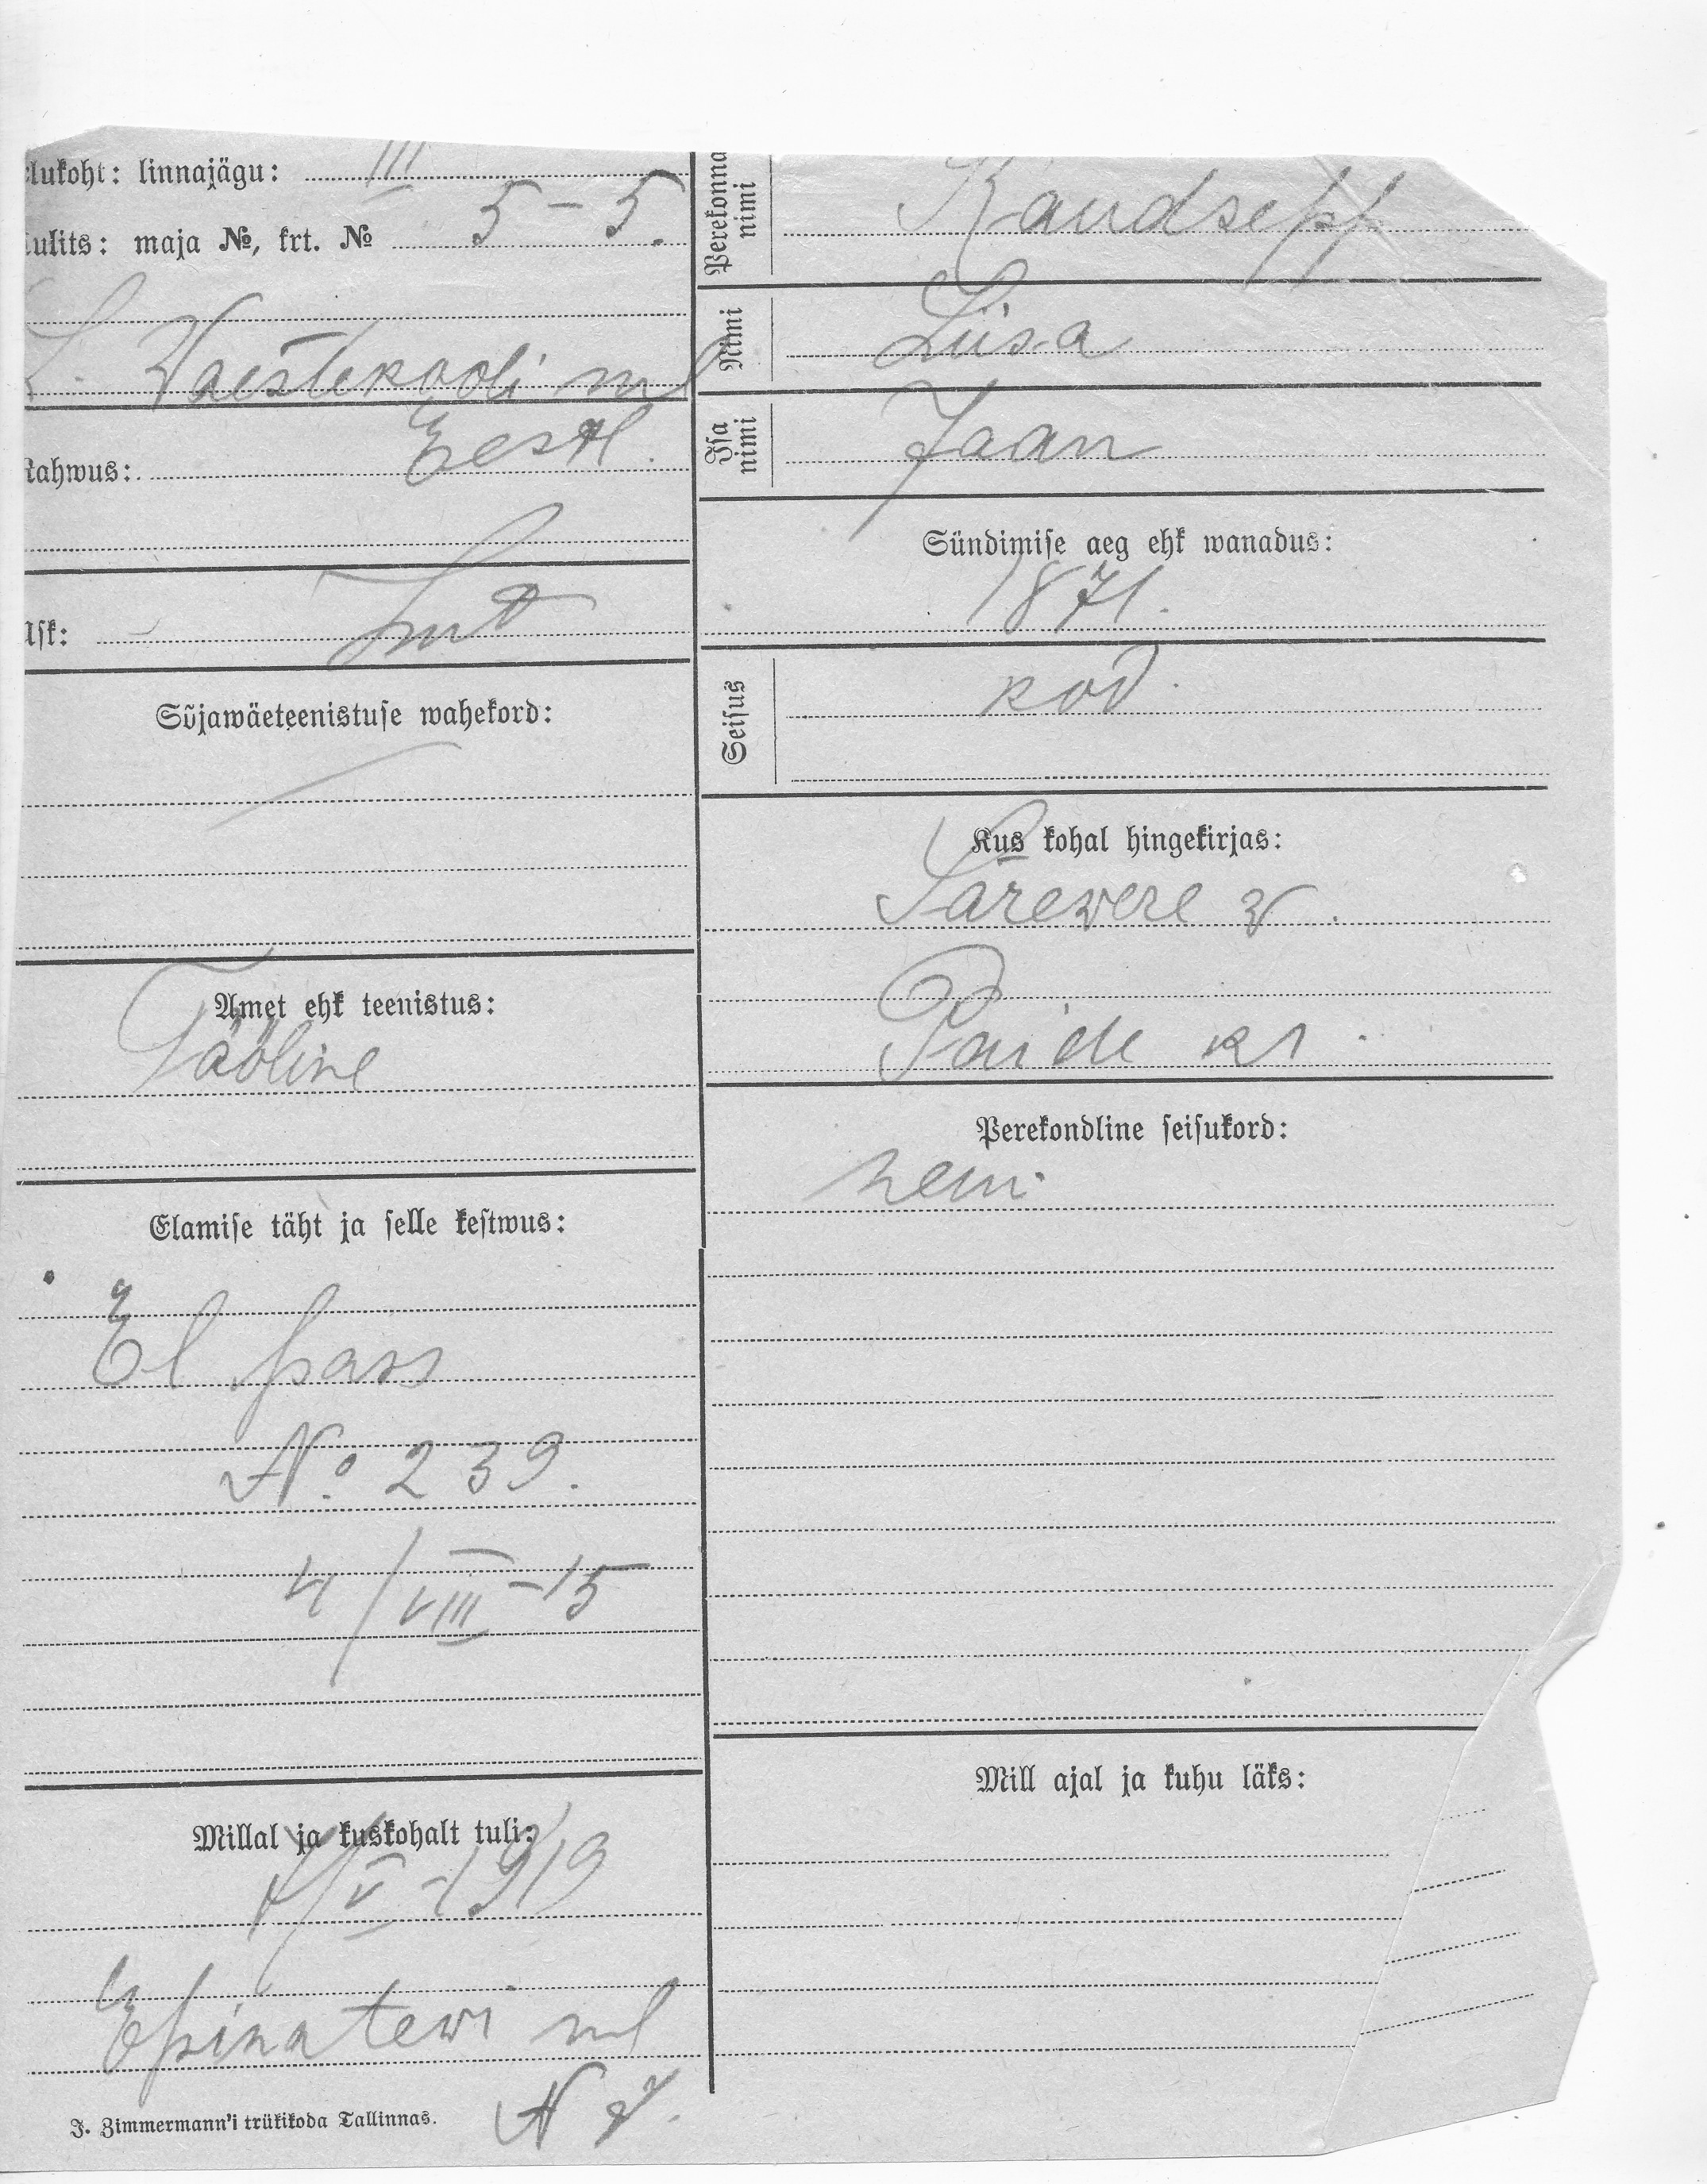 elukoht: linnajägu: III
uulits: maja №, krt. № 5 – 5.
L. Waestekooli ml
Rahwus: Eestl.
Usk: Lut
Sõjawäeteenistuse wahekord:
Amet ehk teenistus:
Tööline
Elamise täht ja selle kestwus:
El pass
№ 239.
4/VIII – 15
Millal ja kuskohalt tuli:
4/V – 1919
Epinatewi ml
N 7.
J. Zimmermann'i trükikoda Tallinnas.
Perekonna nimi
Kandsepp
Nimi
Liisa
Isa nimi
Jaan
Sündimise aeg ehk wanadus:
1871.
Seisus
kod.
Kus kohal hingekirjas:
Särewere w.
Paide kr.
Perekondline seisukord:
neiu.
Mill ajal ja kuhu läks: